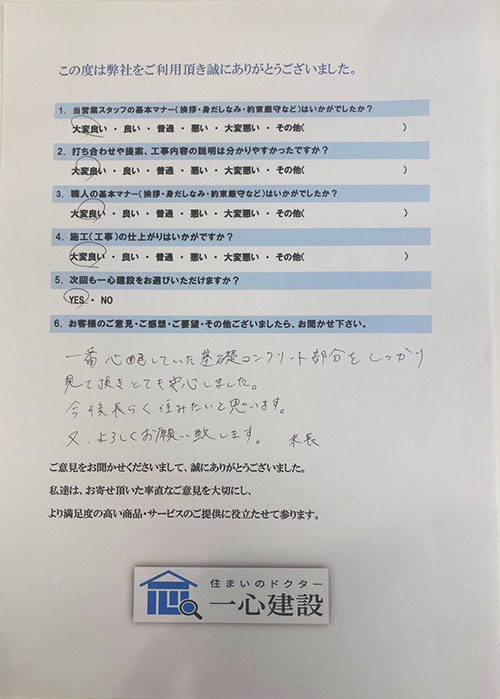 この度は弊社をご利用頂き誠にありがとうございました。
1. 当営業スタッフの基本マナー(挨拶・身だしなみ・約束厳守など)はいかがでしたか?
大変良い ・ 良い ・ 普通 ・ 悪い ・ 大変悪い ・ その他( )
2. 打ち合わせや提案、工事内容の説明は分かりやすかったですか?
大変良い ・ 良い ・ 普通 ・ 悪い ・ 大変悪い ・ その他( )
3. 職人の基本マナー(挨拶・身だしなみ・約束厳守など)はいかがでしたか?
大変良い ・ 良い ・ 普通 ・ 悪い ・ 大変悪い ・ その他( )
4. 施工(工事)の仕上がりはいかがですか?
大変良い ・ 良い ・ 普通 ・ 悪い ・ 大変悪い ・ その他( )
5. 次回も一心建設をお選びいただけますか?
YES ・ NO
6. お客様のご意見・ご感想・ご要望・その他ございましたら、お聞かせ下さい。
一番心配していた基礎コンクリート部分をしっかり
見て頂きとても安心しました。
今後長らく住みたいと思います。
又、よろしくお願い致します。
ご意見をお聞かせくださいまして、誠にありがとうございました。
私達は、お寄せ頂いた率直なご意見を大切にし、
より満足度の高い商品・サービスのご提供に役立たせて参ります。
住まいのドクター
一心建設